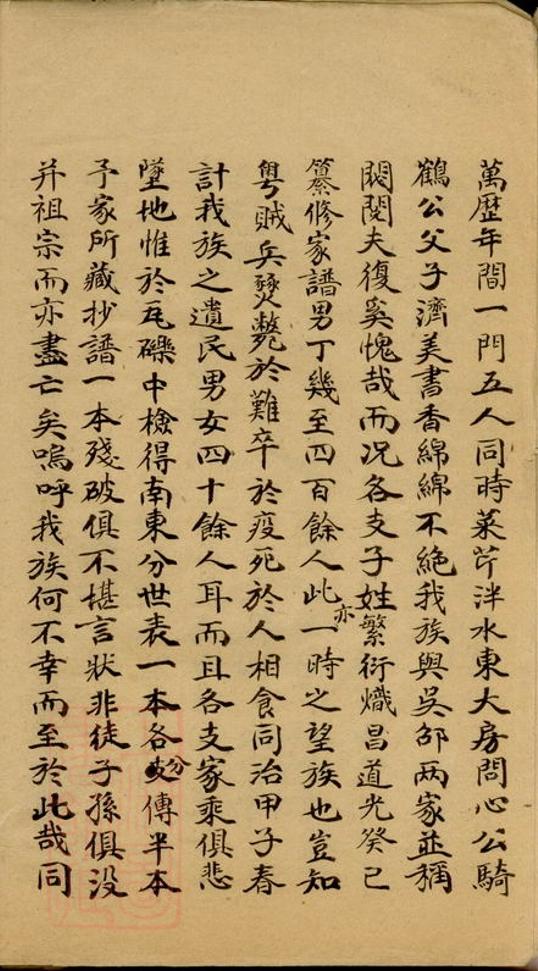 萬歷年間一門五人同時菜芹泮水東大房問心公騎
鶴公父子濟美書香綿綿不絶我族與吳邵两家並稱
閥閱夫復奚愧哉而况各支子姓繁衍熾昌道光癸已
纂修家譜男丁幾至四百餘人此亦一時之望族也豈知
粤賊兵燹斃於難卒於疫死於人相食同治甲子春
計我族之遺民男女四十餘人耳而且各支家乘俱悲
墜地惟於瓦礫中檢得南東分世表一本各分支傳半本
予家所藏抄譜一本殘破俱不堪言狀非徒子孫俱没
并祖宗而亦盡亡矣嗚呼我族何不幸而至於此哉同